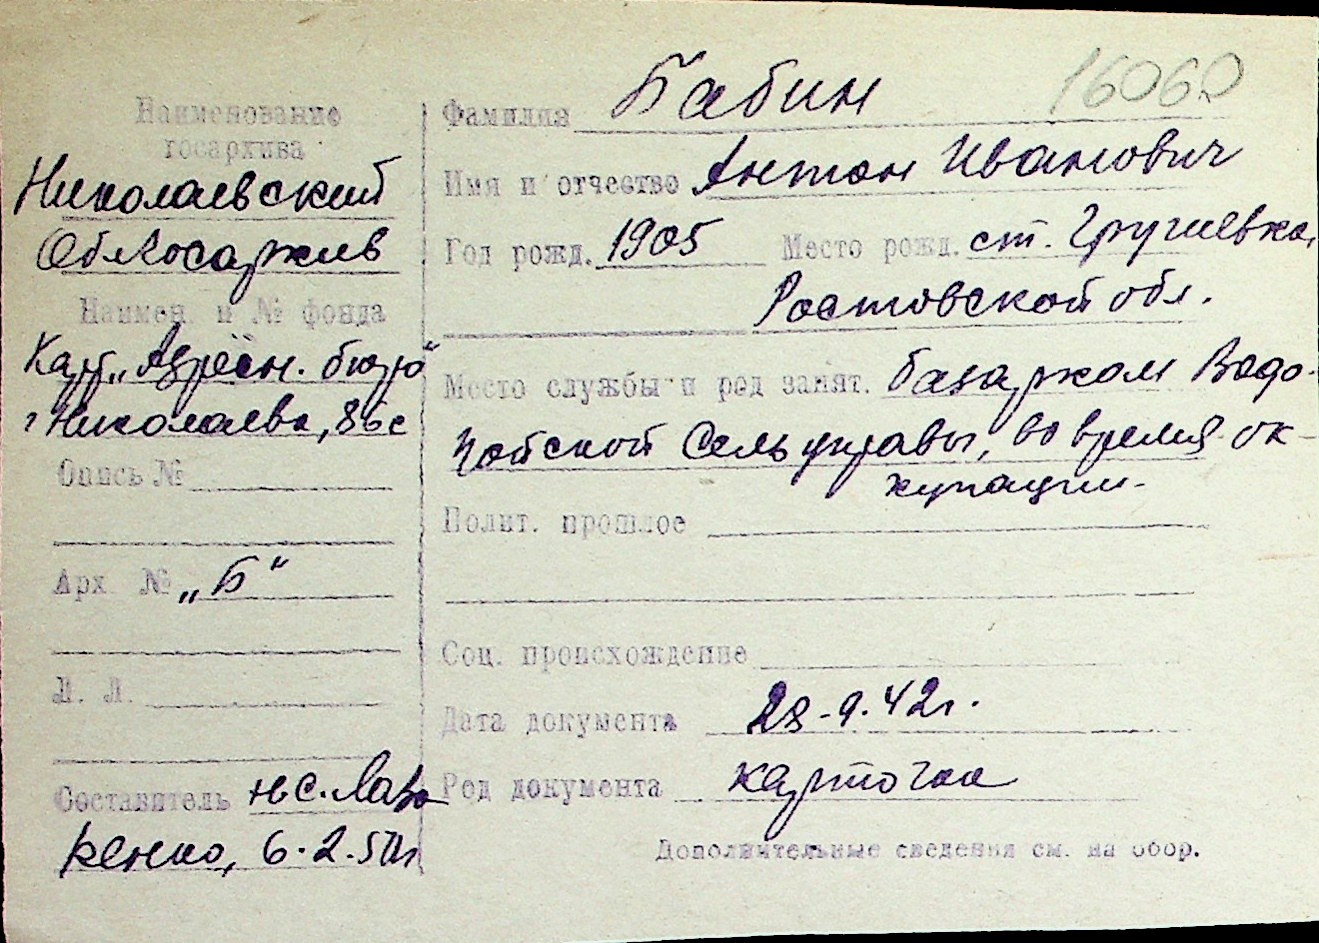 16060
Наименование
госархива
Николаевский
Облгосархив
Наимен. и № фонда
Карт. „Адресн. бюро“
г Николаева, 86с
Опись №
Арх. № „Б“
Л. Л.
Составитель н.с. Лав
ренко, 6.2.50г
Фамилия Бабин
Имя и отчество Антон Иванович
Год рожд. 1905 Место рожд. ст. Грушевка,
Ростовской обл.
Место службы и род занят. базарком Водо-
пойской Сельуправы, во время ок-
купации.
Полит. прошлое
Соц. происхождение
Дата документа 28.9.42г.
Род документа карточка
Дополнительные сведения см. на обор.